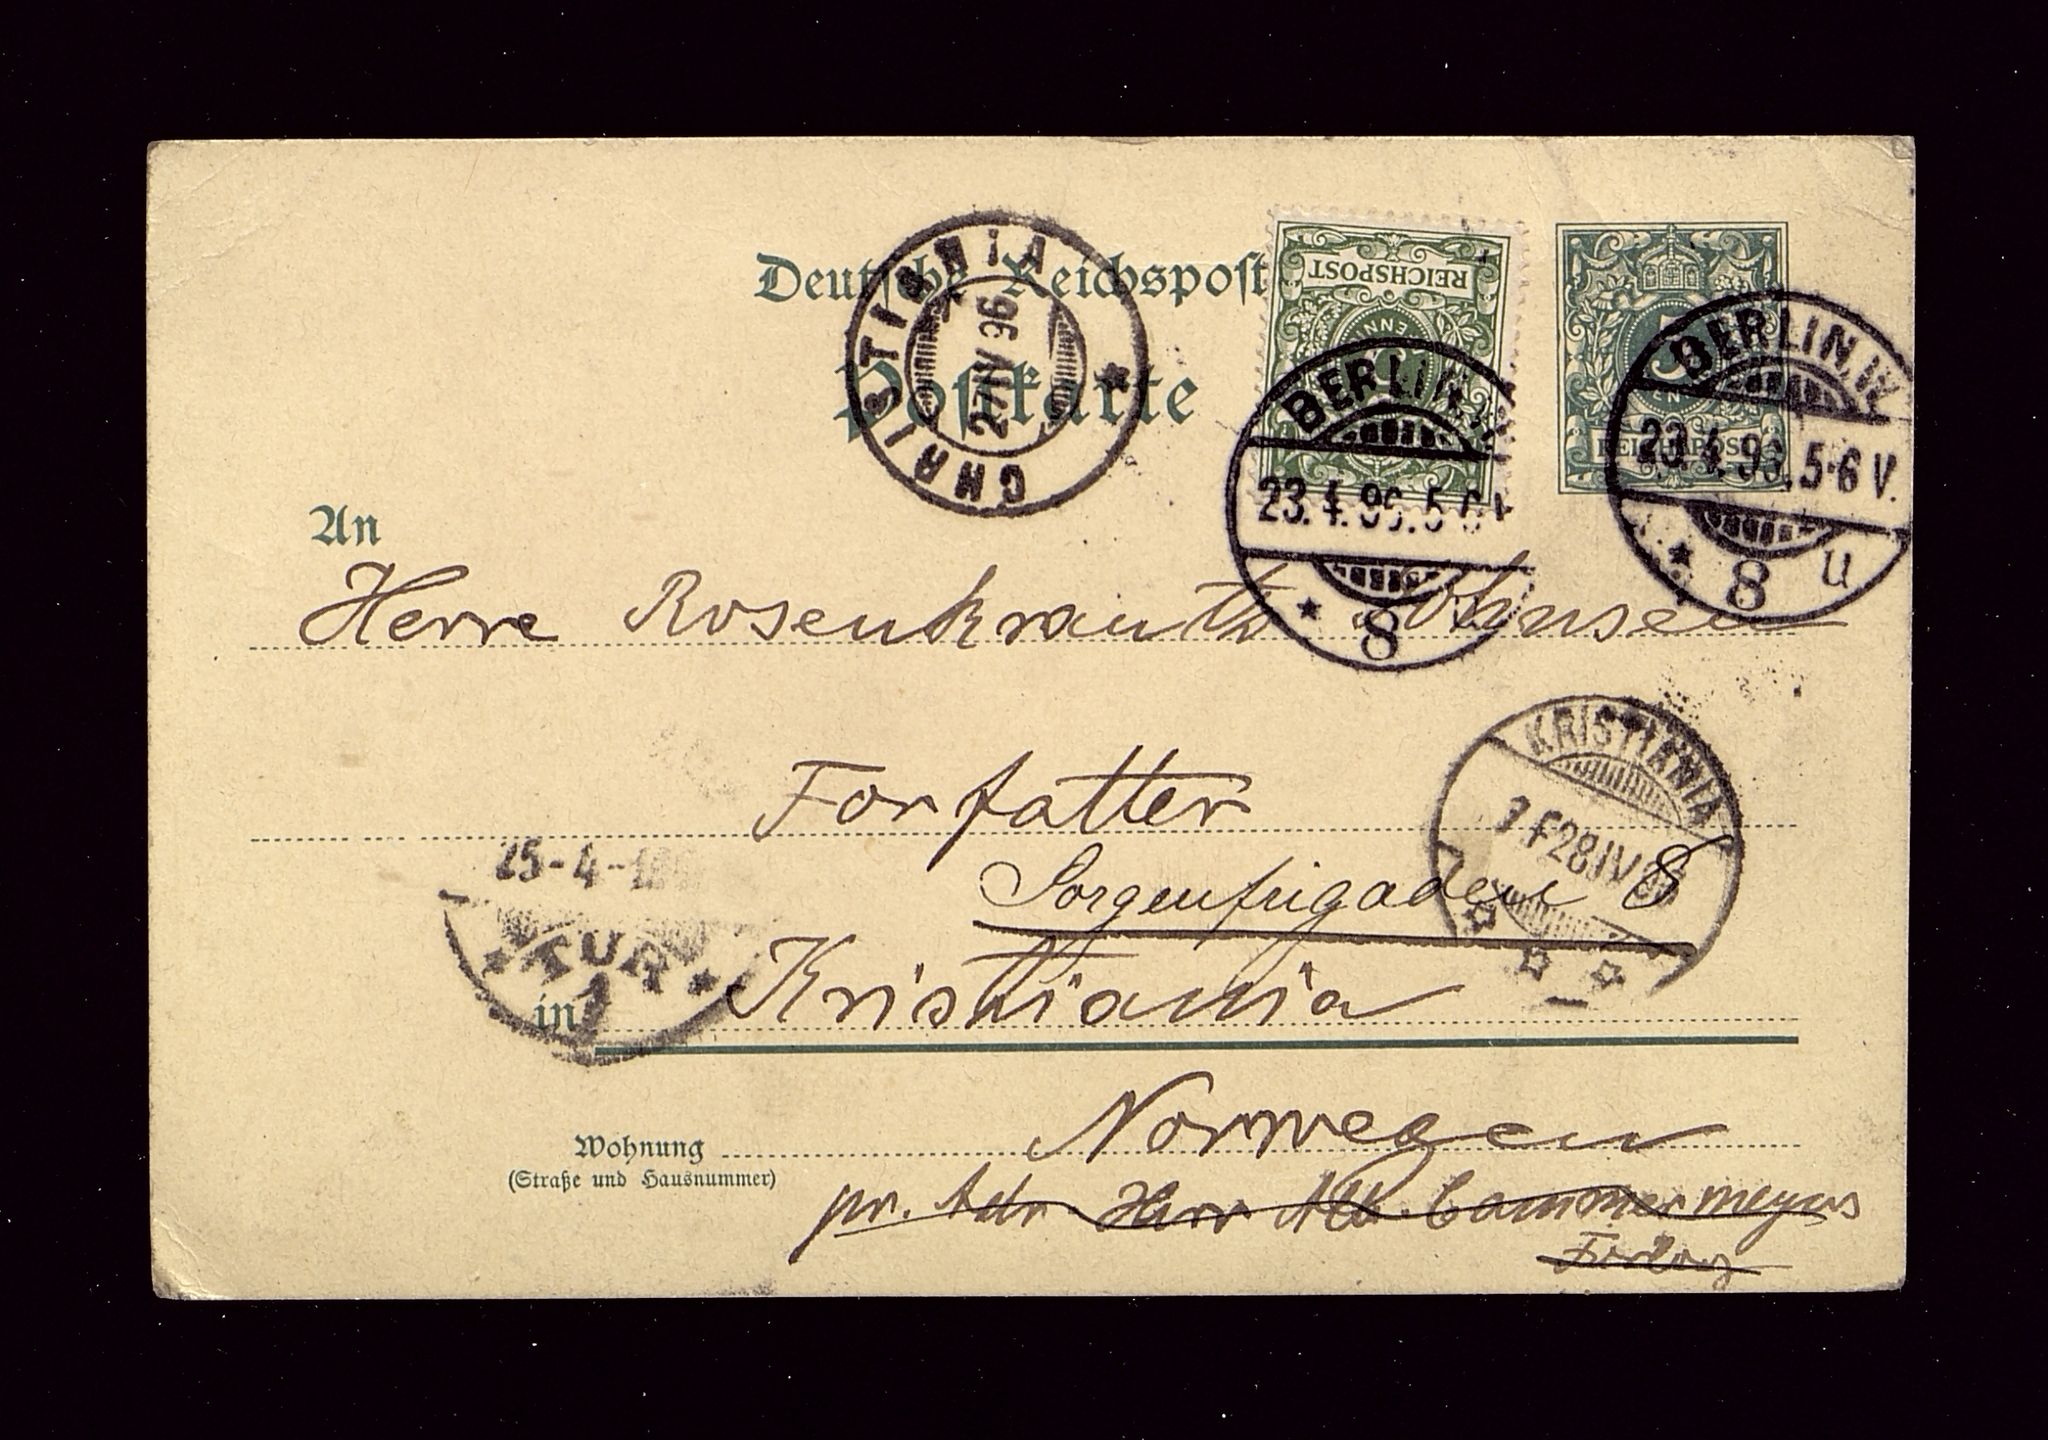 Deutsche Reichspost
Postkarte
CHRISTIANIA
27 IV 96
REICHSPOST
BERLIN.W.
23.4.96.5-6V
8
REICHSPOST
BERLIN.W.
23.4.96.5-6V.
8 u
An
Herre Rosenkrantz Johnsen
Forfatter
Sorgenfrigaden 8
KRISTIANIA
28 IV
25-4-
TUR
1
in Kristiania
Norwegen
Wohnung
(Straße und Hausnummer)
pr. Adr. Herr Alb. Cammermeyers
Forlag